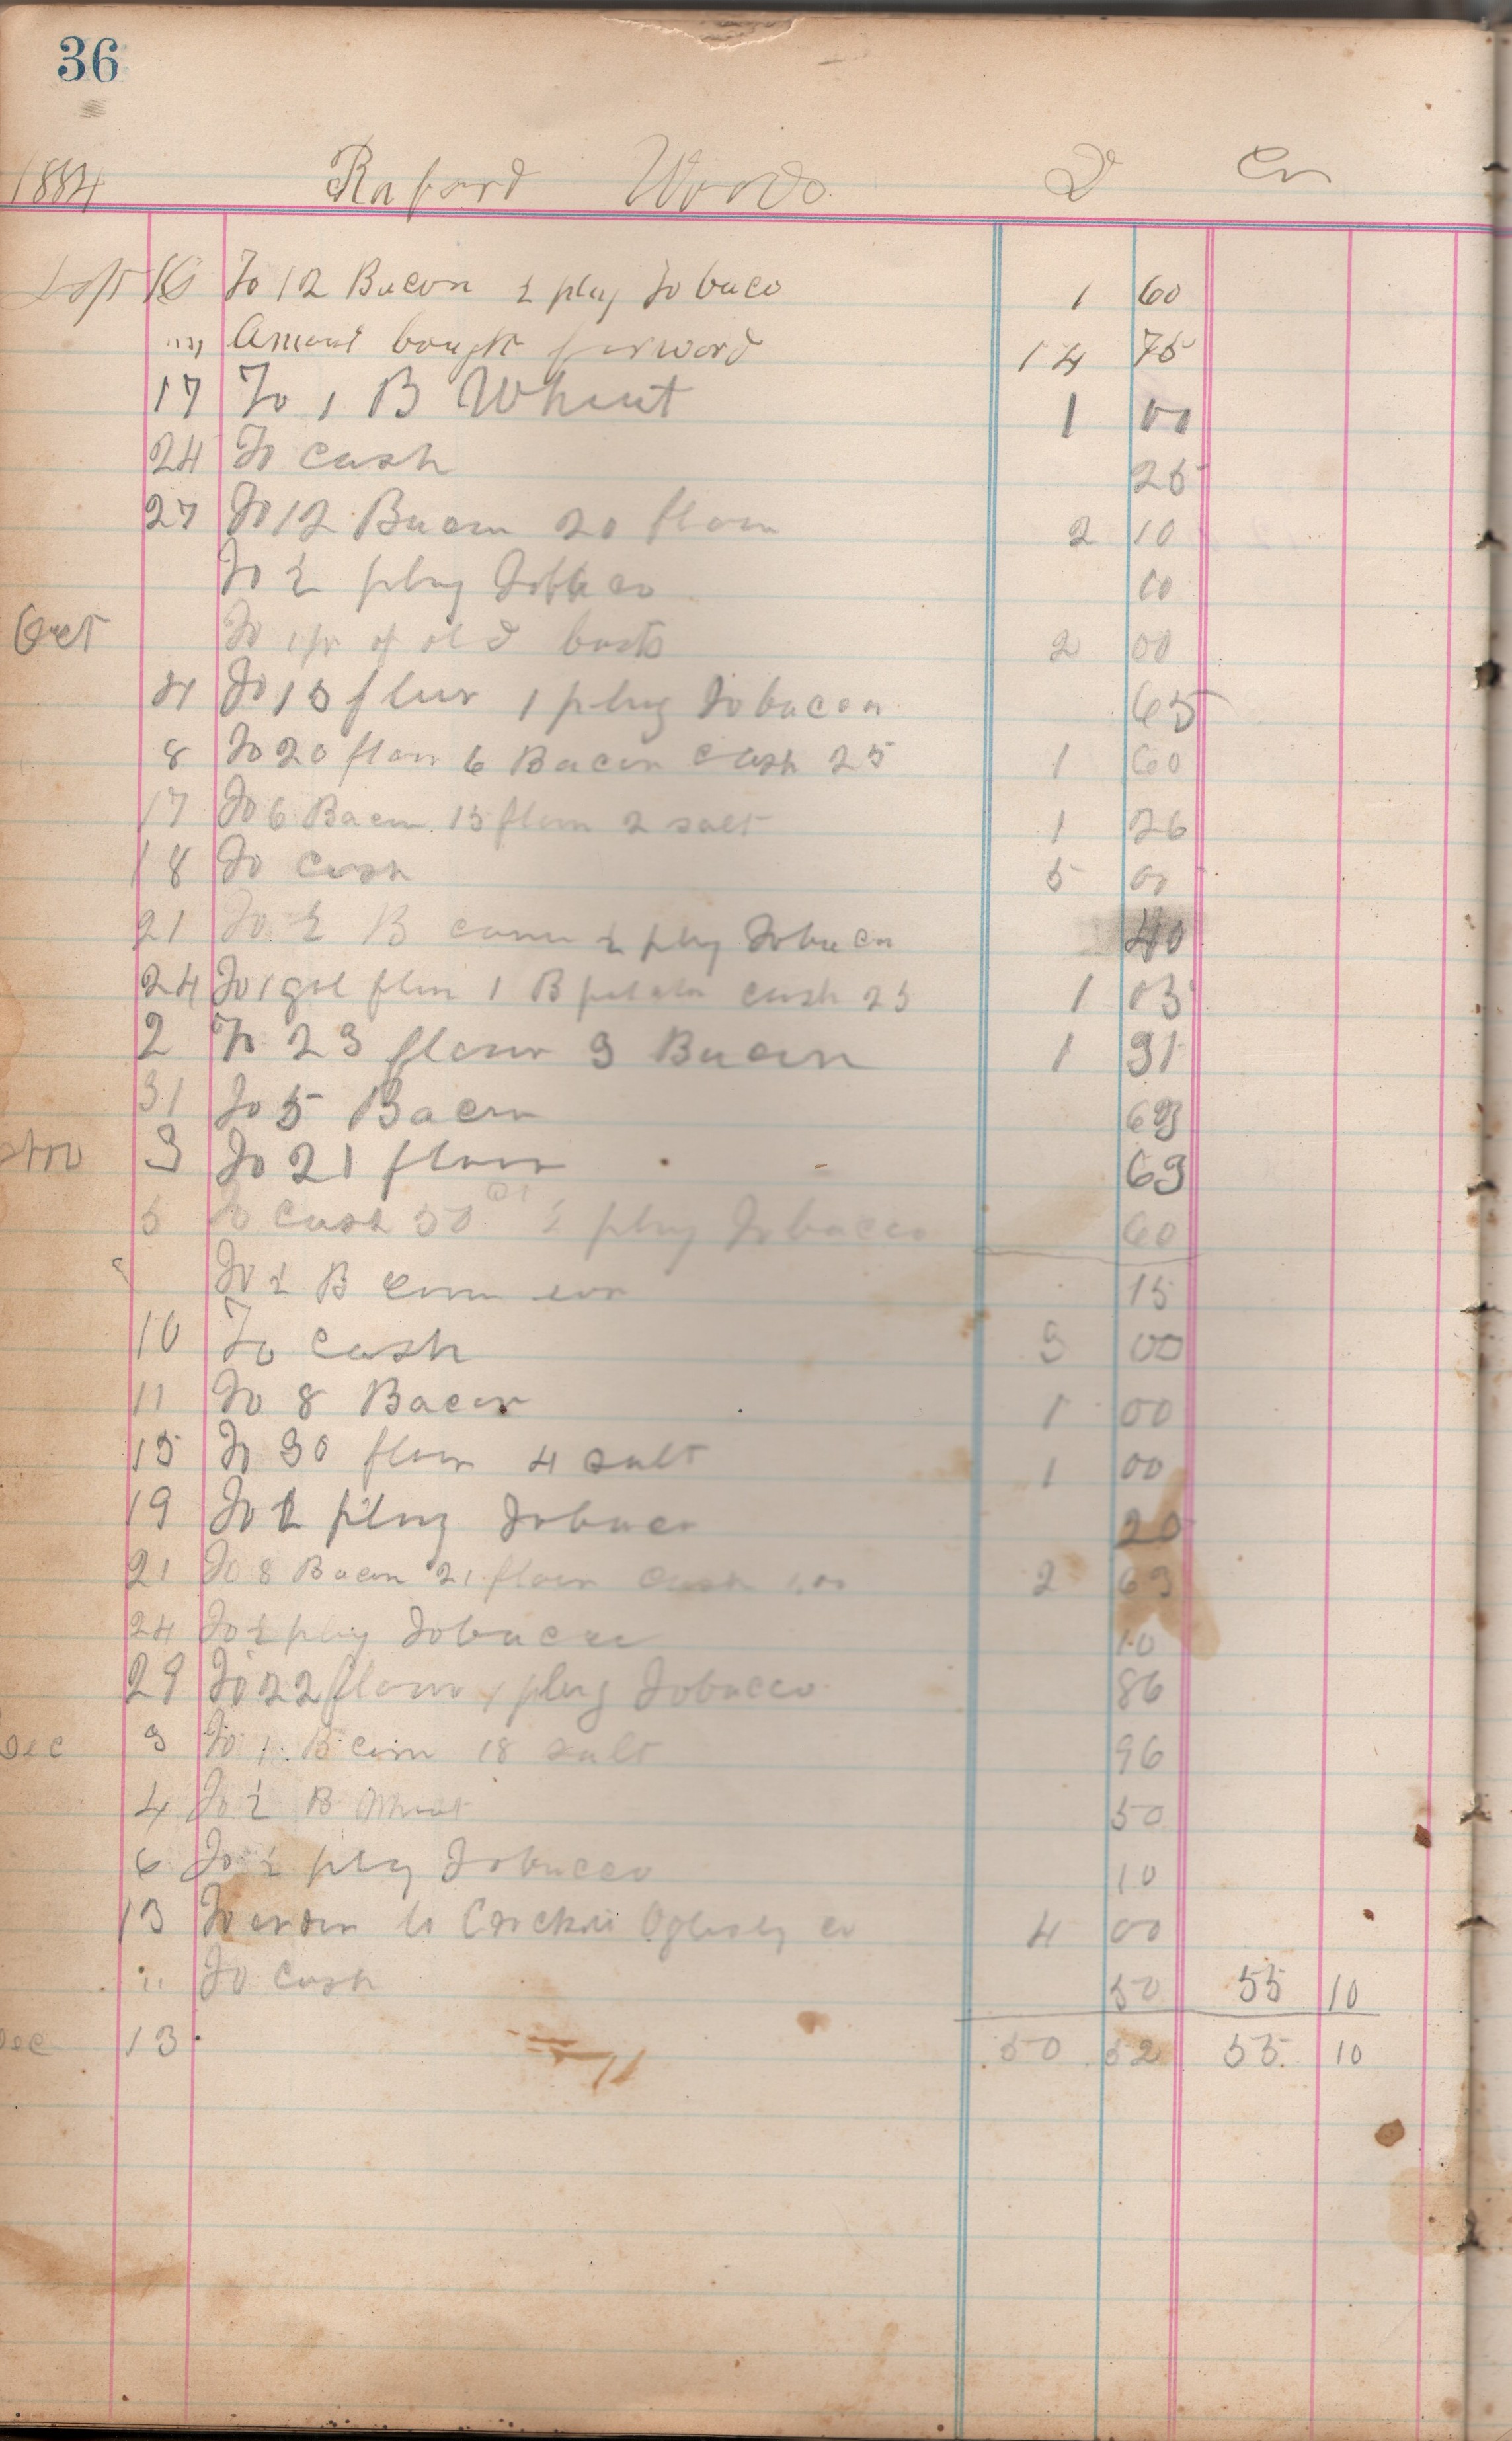 36
1884 Raford Woods D Cr
Sept 16 To 12 Bacon ½ plug Tobaco 1 60
"" Amount bought forward 14 75
17 To 1 B Wheat 1 00
24 To Cash 25
27 To 12 Bacon 20 flour 2 10
To ½ plug Tobbaco 10
Oct To 1 pr of old boots 2 00
4 To 15 flur 1 plug Tobacco 65
8 To 20 flour 6 Bacon Cash 25 1 60
17 To 6 Bacon 15 flour 2 salt 1 26
18 To Cash 5 00
21 To ½ B corn ½ plug Tobacco 40
24 To 1 flour 1 B Cash 25 1 03
2 To 23 flour 3 Bacon 1 31
31 To 5 Bacon 63
Nov 3 To 21 flour 63
5 To Cash 50 ½ plug Tobacco 60
To ½ B Corn 15
10 To Cash 3 00
11 To 8 Bacon 1 00
15 To 30 flour 4 salt 1 00
19 To 1 plug Tobaco 20
21 To 8 Bacon 21 flour Cash 1.00 2 63
24 To ½ plug Tobacco 10
29 To 22 flour 1 plug Tobacco 86
Dec 3 To 1 B Corn 18 salt 96
4 To ½ B Wheat 50
6 To ½ plug Tobacco 10
13 To order to Oglesby co 4 00
" To Cash 50 55 10
Dec 13 50 52 55 10